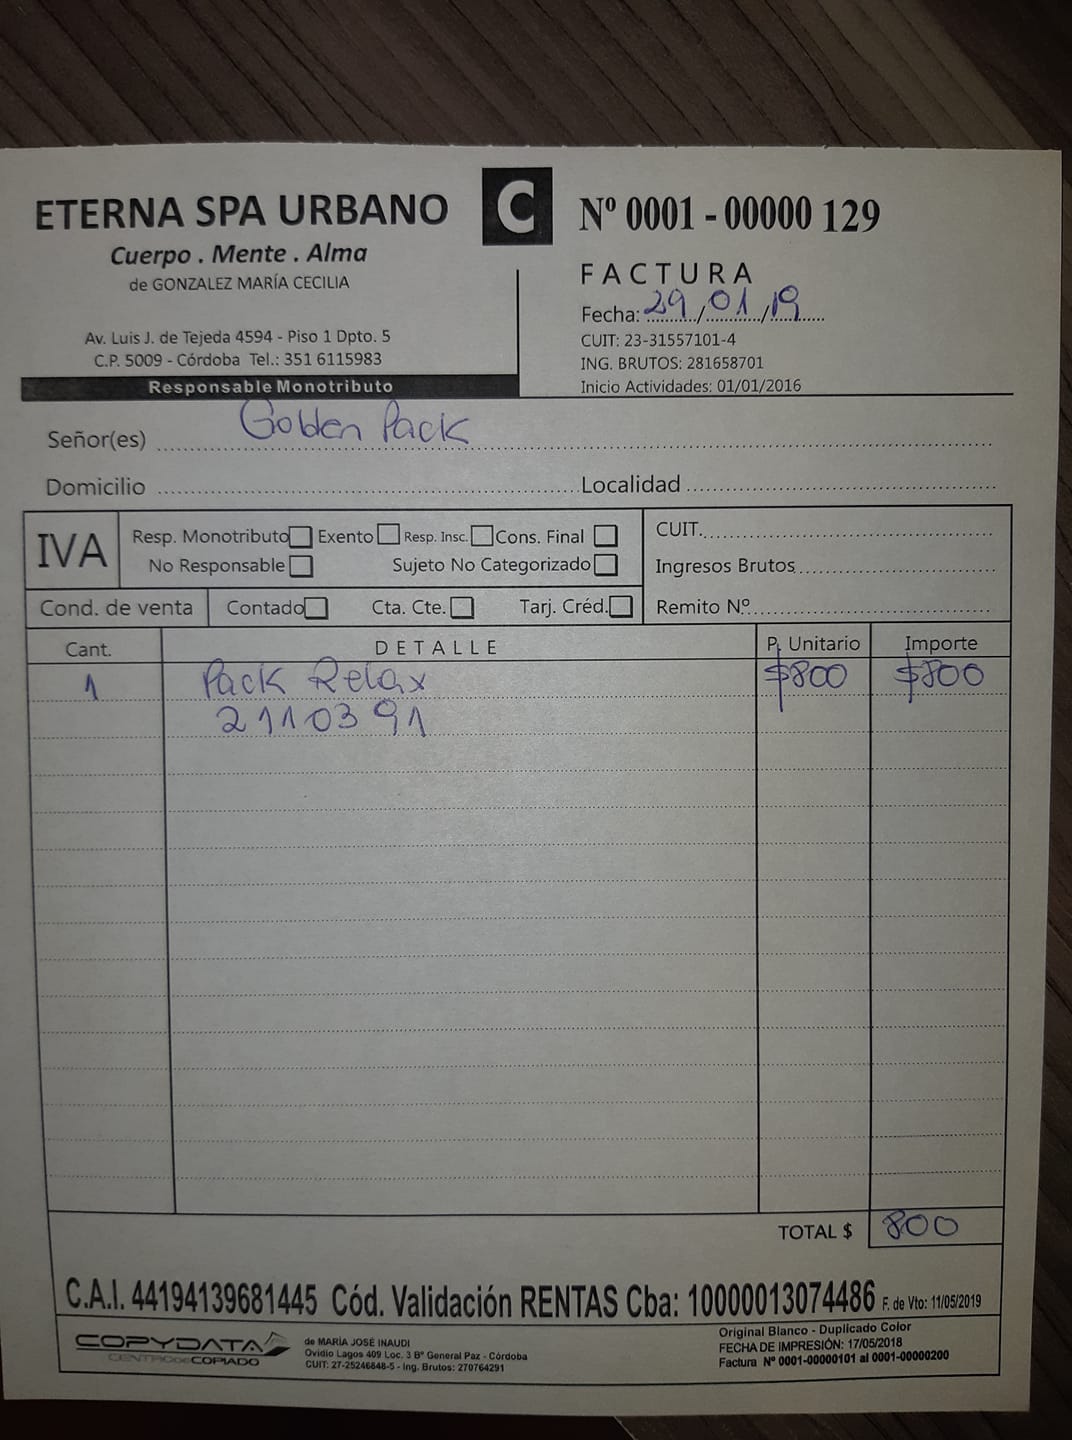 ETERNA SPA URBANO
Cuerpo . Mente . Alma
de GONZALEZ MARÍA CECILIA
Av. Luis J. de Tejeda 4594 - Piso 1 Dpto. 5
C.P. 5009 - Córdoba Tel.: 351 6115983
Responsable Monotributo
C
Nº 0001 - 00000 129
FACTURA
Fecha: 29/01/19
CUIT: 23-31557101-4
ING. BRUTOS: 281658701
Inicio Actividades: 01/01/2016
Señor(es) Golden Pack
Domicilio Localidad
IVA
Resp. Monotributo Exento Resp. Insc. Cons. Final
No Responsable Sujeto No Categorizado
CUIT.
Ingresos Brutos
Cond. de venta Contado Cta. Cte. Tarj. Créd. Remito Nº
Cant. DETALLE P. Unitario Importe
1 Pack Relax $800 $800
2110391
TOTAL $ 800
C.A.I. 44194139681445 Cód. Validación RENTAS Cba: 10000013074486 F. de Vto: 11/05/2019
COPYDATA
CENTRO DE COPIADO
de MARÍA JOSÉ INAUDI
Ovidio Lagos 409 Loc. 3 Bº General Paz - Córdoba
CUIT: 27-25246848-5 - Ing. Brutos: 270764291
Original Blanco - Duplicado Color
FECHA DE IMPRESIÓN: 17/05/2018
Factura Nº 0001-00000101 al 0001-00000200